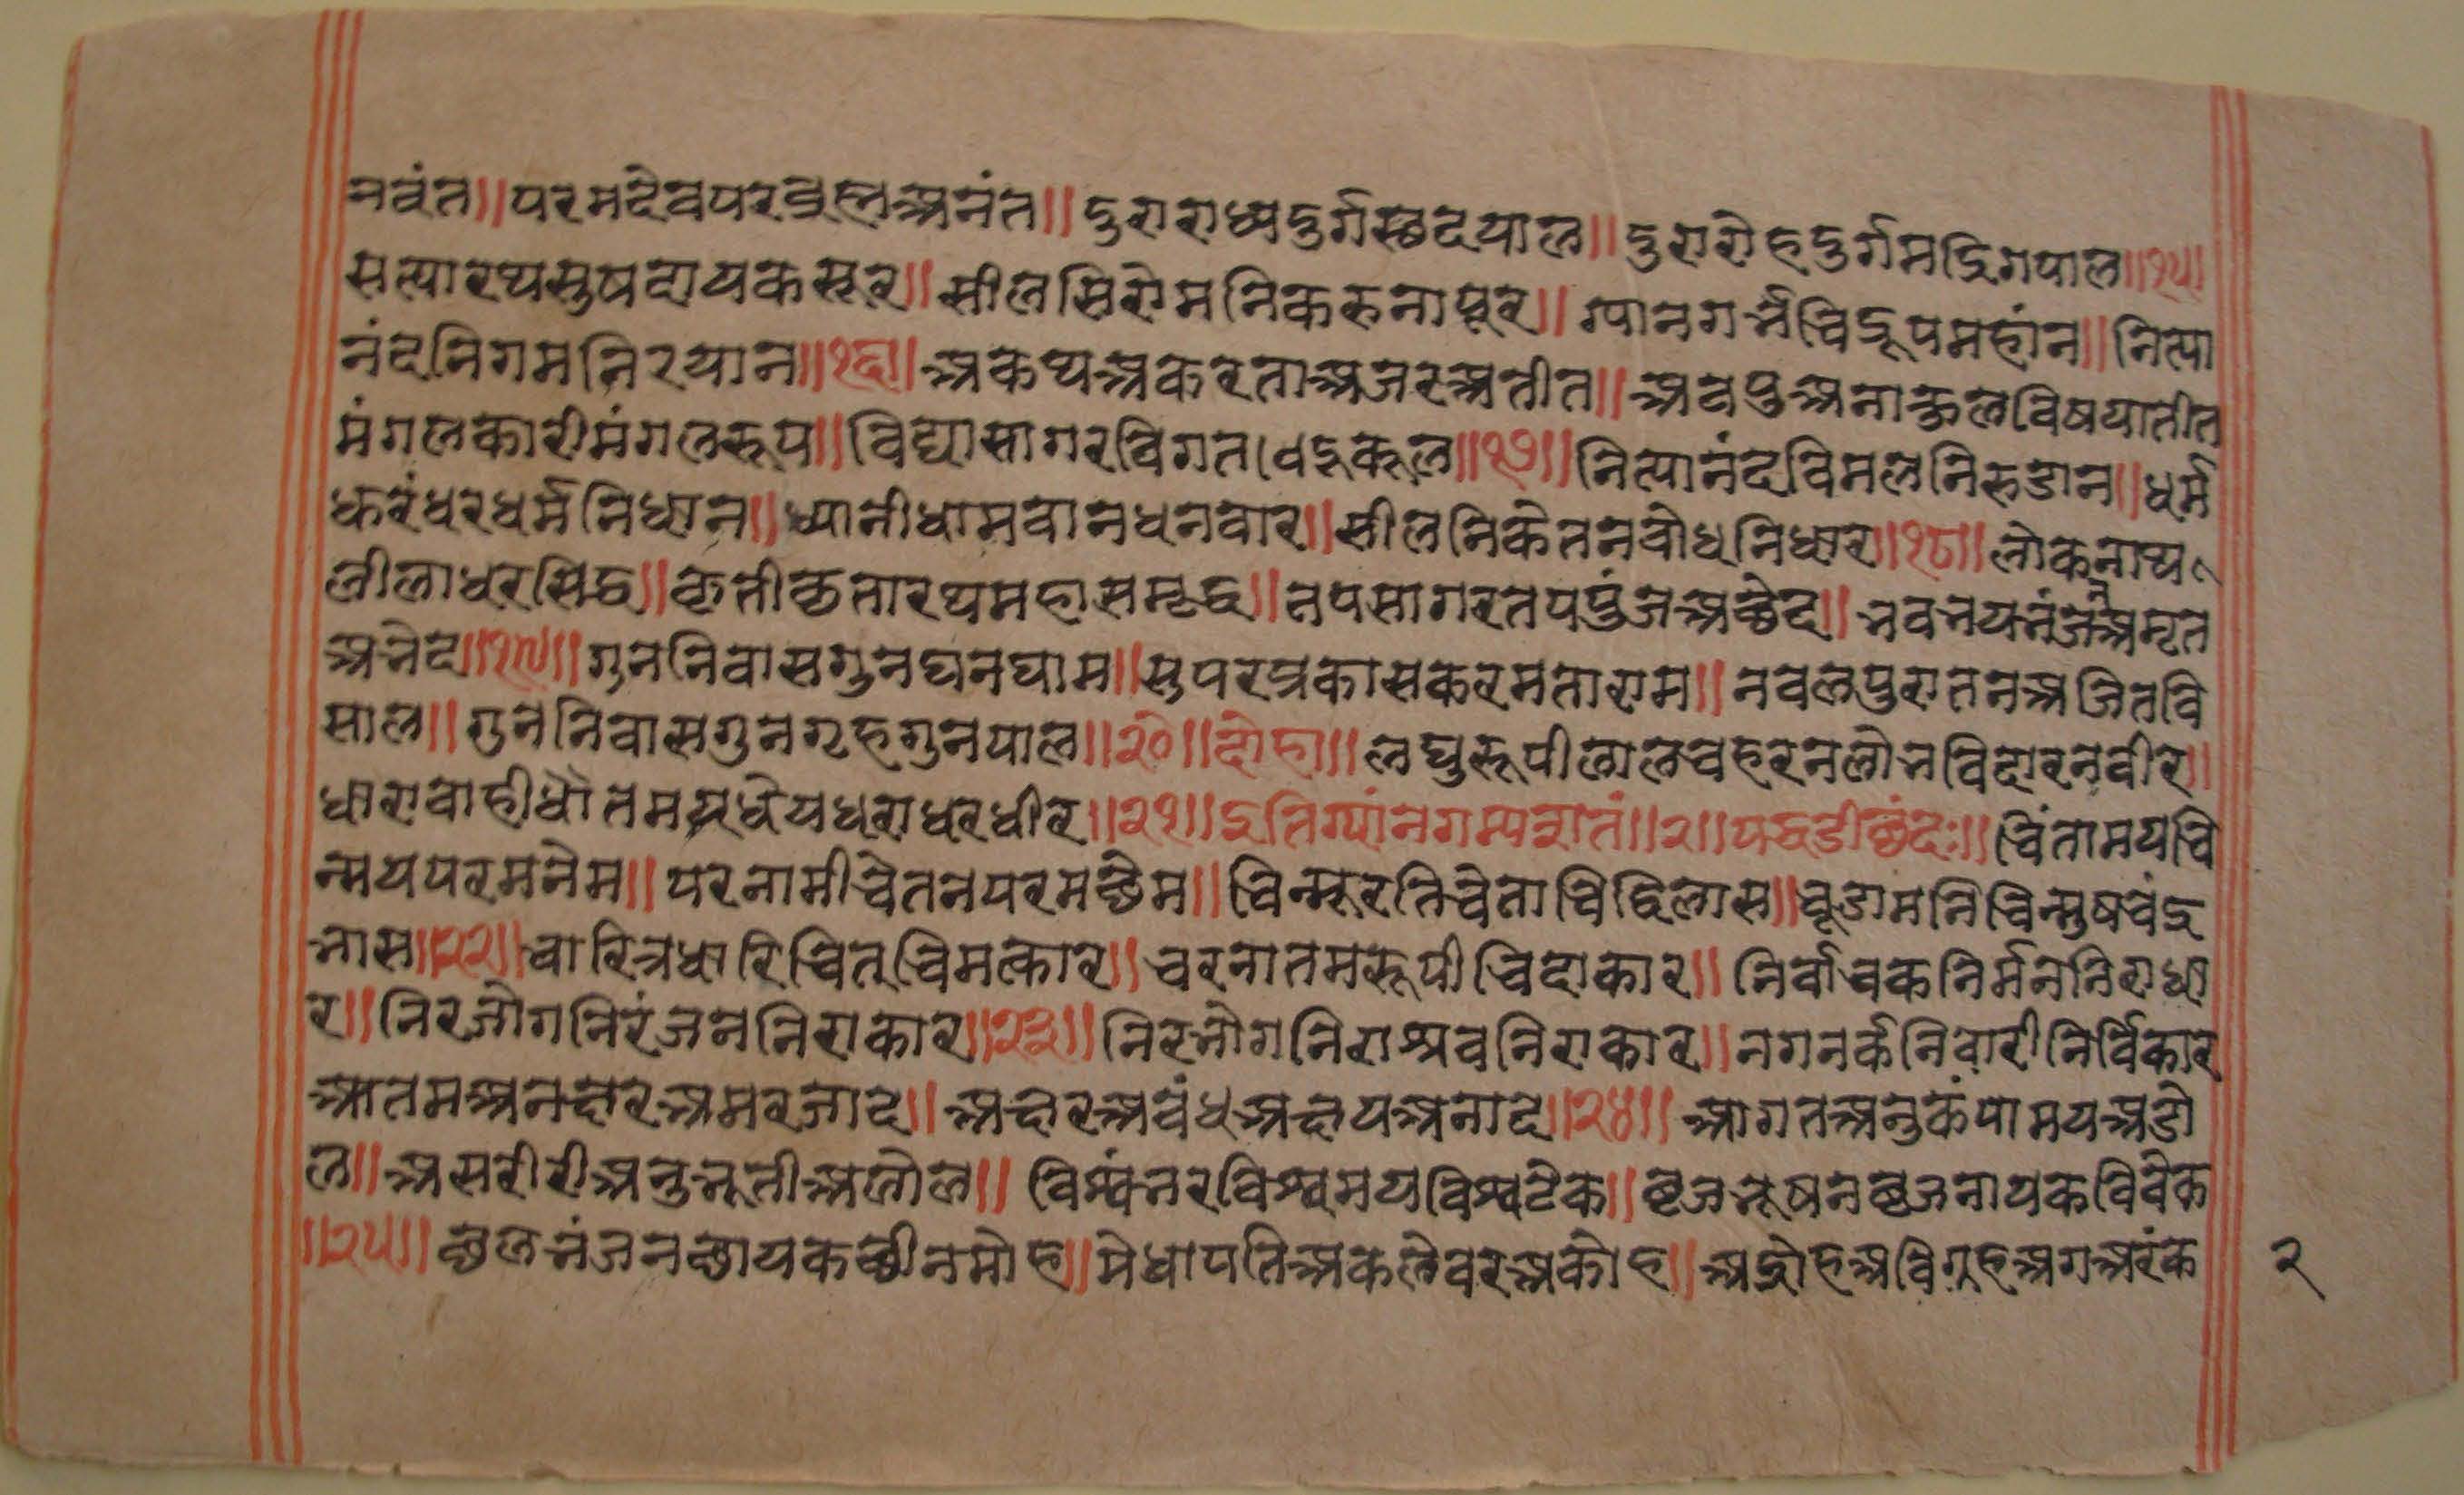 नवंत॥परमदेवपरब्रह्मअनंत॥दुराराध्यदुर्गस्छदयाल॥दुरारोहदुर्गमद्रिगपाल॥१५॥
सत्यारथसुषदायकसूर॥सीलसिरोमनिकरुनापूर॥ग्यानगर्भचिद्रूपमहांन॥नित्या
नंदनिगमनिरयान॥१६॥अकथअकरताअजरअतीत॥अवपुअनाकुलविषयातीत
मंगलकारीमंगलरूप॥विद्यासागरविगत॥१७॥नित्यानंदविमलनिरुडान॥धर्म
धरंधरधर्मनिधान॥ध्यानीधामवानधनवार॥सीलनिकेतनबोधनिधार॥१८॥लोकनाथ
लीलाधरसिद्ध॥कृतीकृतारथमहासमृद्ध॥तपसागरतपपुंजअछेद॥भवभयभंजनअमृत
अभेद॥१९॥गुननिवासगुनघनघाम॥सुपरप्रकासकरमताराम॥नवलपुरातनअजितवि
साल॥गुननिवासगुनगृहगुनपाल॥२०॥दोहा॥लघुरूपीलालचहरनलोभविदारनवीर॥
धारावाहीधौतमयध्येयधराधरधीर॥२१॥इतिग्यांनगम्यशतं॥२॥पद्धडीछंदः॥चिंतामयचि
न्मयपरमनेम॥परनामीचेतनपरमछेम॥चिन्मूरतिचेताचिद्विलास॥चूडामनिचिन्मुषचंद्र
भास॥२२॥चारित्रधारिचितचिमत्कार॥चरनातमरूपीचिदाकार॥निर्वाचकनिर्ममनिराधा
र॥निरजोगनिरंजननिराकार॥२३॥निरभोगनिराश्रवनिराकार॥नगनर्कनिवारीनिर्विकार
आतमअनक्षरअमरजाद॥अक्षरअबंधअक्षयअनाद॥२४॥आगतअनुकंपामयअडो
ल॥असरीरीअनुभूतीअलोल॥विश्वंभरविश्वमयविश्वटेक॥ब्रजभूषनब्रजनायकविवेक
॥२५॥छलभंजनछायकछीनमोह॥मेधापतिअकलेवरअकोह॥अद्रोहअविग्रहअगअरंक
२